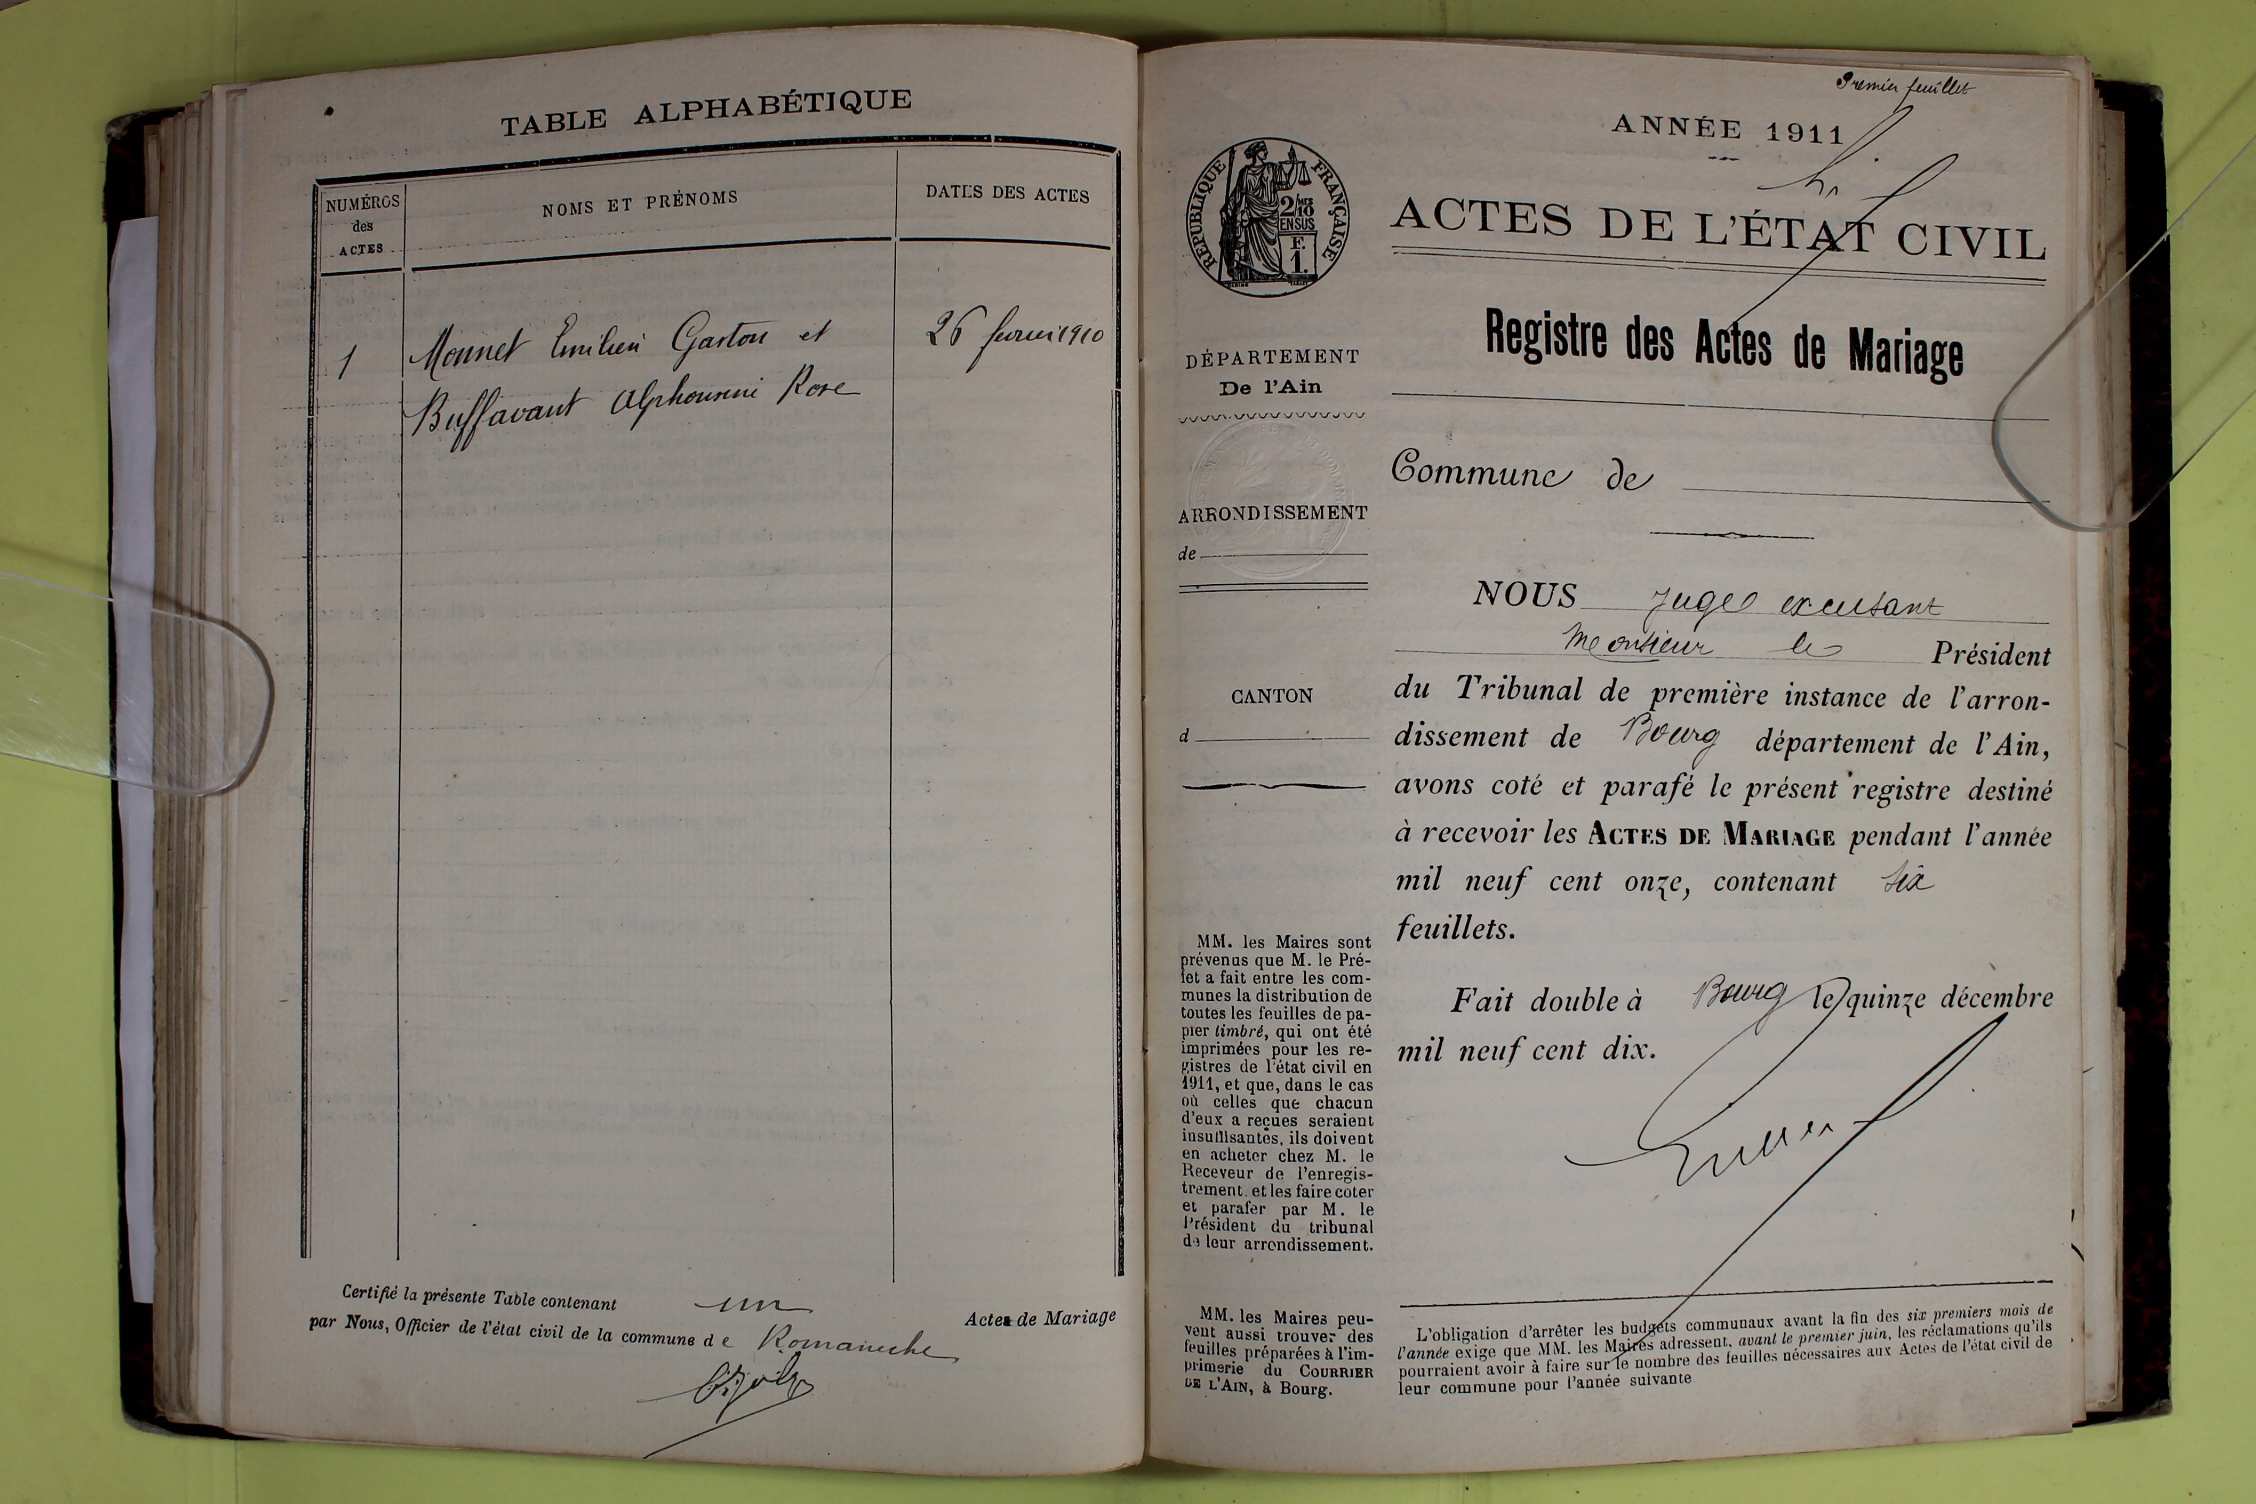 TABLE ALPHABÉTIQUE
NUMÉROS
des
ACTES
NOMS ET PRÉNOMS
DATES DES ACTES
1
Monnet Emilien Gaston et
26 février 1910
Buffavant Alphonsine Rose
Certifié la présente Table contenant un Actes de Mariage
par Nous, Officier de l'état civil de la commune de Romanèche
Premier feuillet
ANNÉE 1911
ACTES DE L'ÉTAT CIVIL
RÉPUBLIQUE FRANÇAISE
2/10
MES
EN SUS
F.
1.
Registre des Actes de Mariage
DÉPARTEMENT
De l'Ain
ARRONDISSEMENT
de
CANTON
d
MM. les Maires sont
prévenus que M. le Pré-
fet a fait entre les com-
munes la distribution de
toutes les feuilles de pa-
pier timbré, qui ont été
imprimées pour les re-
gistres de l'état civil en
1911, et que, dans le cas
où celles que chacun
d'eux a reçues seraient
insuffisantes, ils doivent
en acheter chez M. le
Receveur de l'enregis-
trement, et les faire coter
et parafer par M. le
Président du tribunal
de leur arrondissement.
MM. les Maires peu-
vent aussi trouver des
feuilles préparées à l'im-
primerie du COURRIER
DE L'AIN, à Bourg.
Commune de
NOUS Juge excusant
Monsieur le Président
du Tribunal de première instance de l'arron-
dissement de Bourg département de l'Ain,
avons coté et parafé le présent registre destiné
à recevoir les ACTES DE MARIAGE pendant l'année
mil neuf cent onze, contenant six
feuillets.
Fait double à Bourg le quinze décembre
mil neuf cent dix.
L'obligation d'arrêter les budgets communaux avant la fin des six premiers mois de
l'année exige que MM. les Maires adressent, avant le premier juin, les réclamations qu'ils
pourraient avoir à faire sur le nombre des feuilles nécessaires aux Actes de l'état civil de
leur commune pour l'année suivante